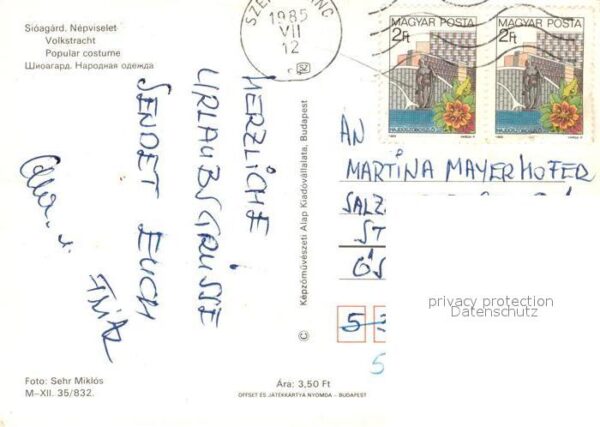 Sióagárd. Népviselet
Volkstracht
Popular costume
Шиоагард. Народная одежда
1985
VII
12
SZ
MAGYAR POSTA
2Ft
MAGYAR POSTA
2Ft
HERZLICHE
URLAUBSGRÜSSE
SENDET EUCH
Fritz
© Képzőművészeti Alap Kiadóvállalata, Budapest
AN
MARTINA MAYERHOFER
SALZ
ST
ÖS
5
5
privacy protection
Datenschutz
Foto: Sehr Miklós
M–XII. 35/832.
Ára: 3,50 Ft
OFFSET ÉS JÁTÉKKÁRTYA NYOMDA – BUDAPEST